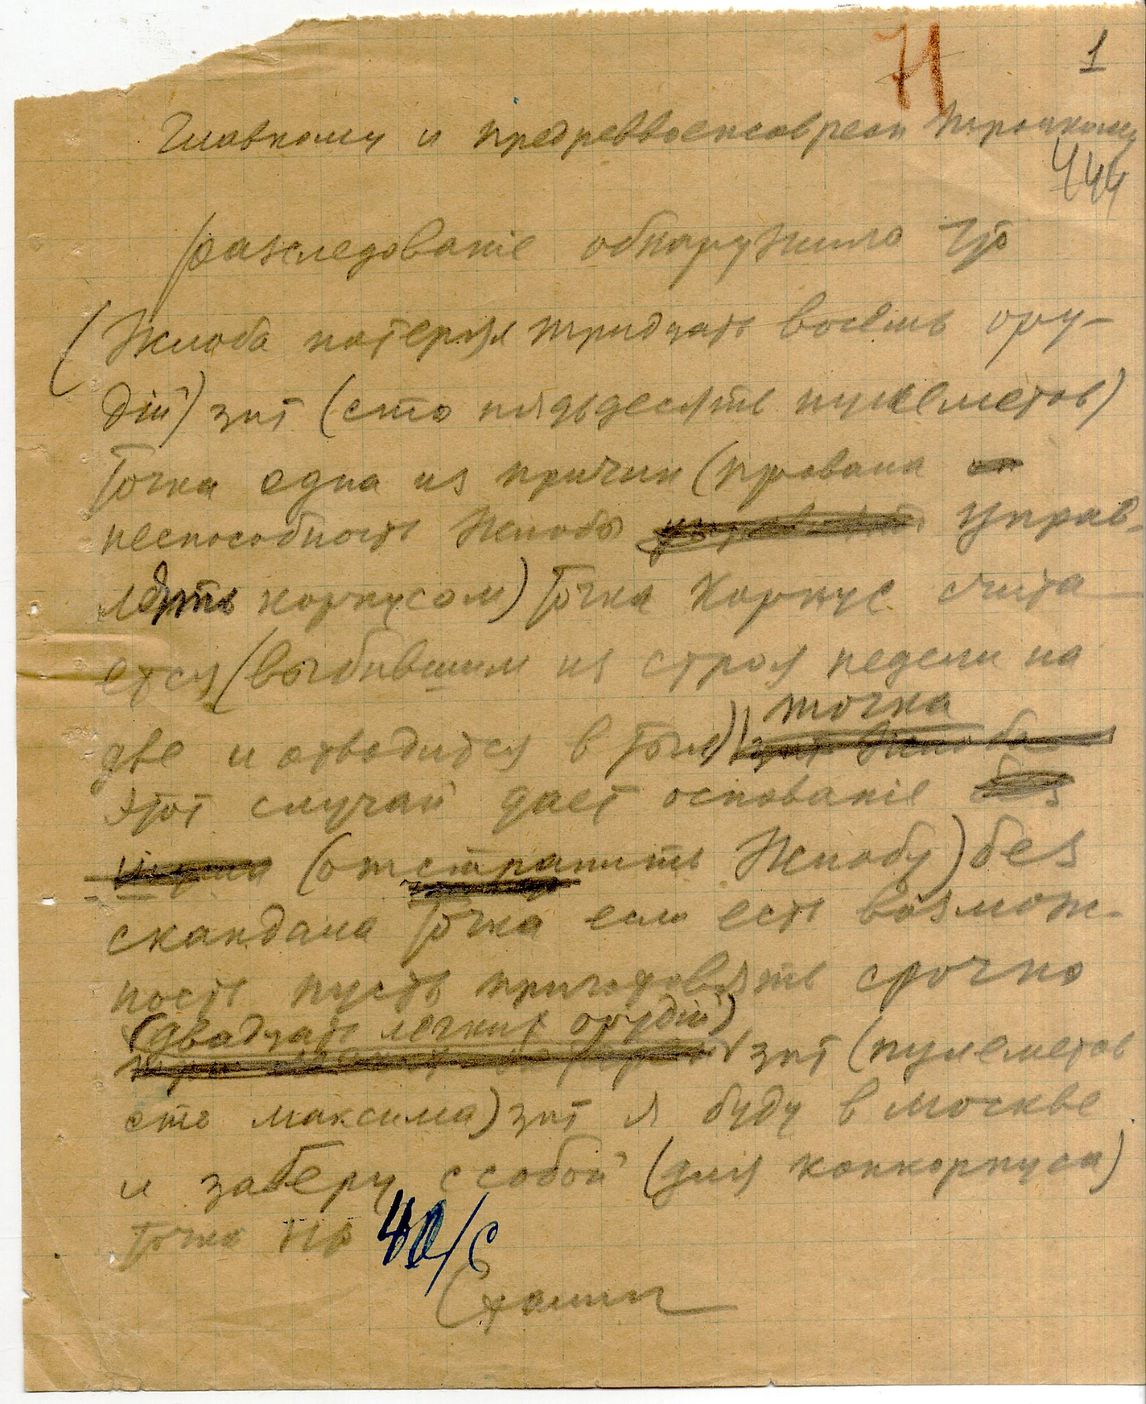 71
1
Главкому и предреввоенсовресп Троцкому
444
Разследованiе обнаружило что
(Жлоба потерял тридцать восемь ору-
дiй) зпт (сто пядьдесять пулеметов)
Точка одна из причин (провала
неспособность Жлобы управ-
лять корпусом) Точка Корпус счита
ется (выбившим из строя недели на
точка
две и отводится в тыл)
этот случай дает основанiе
(отстранить Жлобу) без
скандала Точка если есть возмож-
ность пусть приготовять срочно
(двадцать легких орудiй)
зпт (пулеметов
сто максима) зпт я буду в Москве
и заберу с собой (для конкорпуса)
Точка Нр 40/с
Сталин